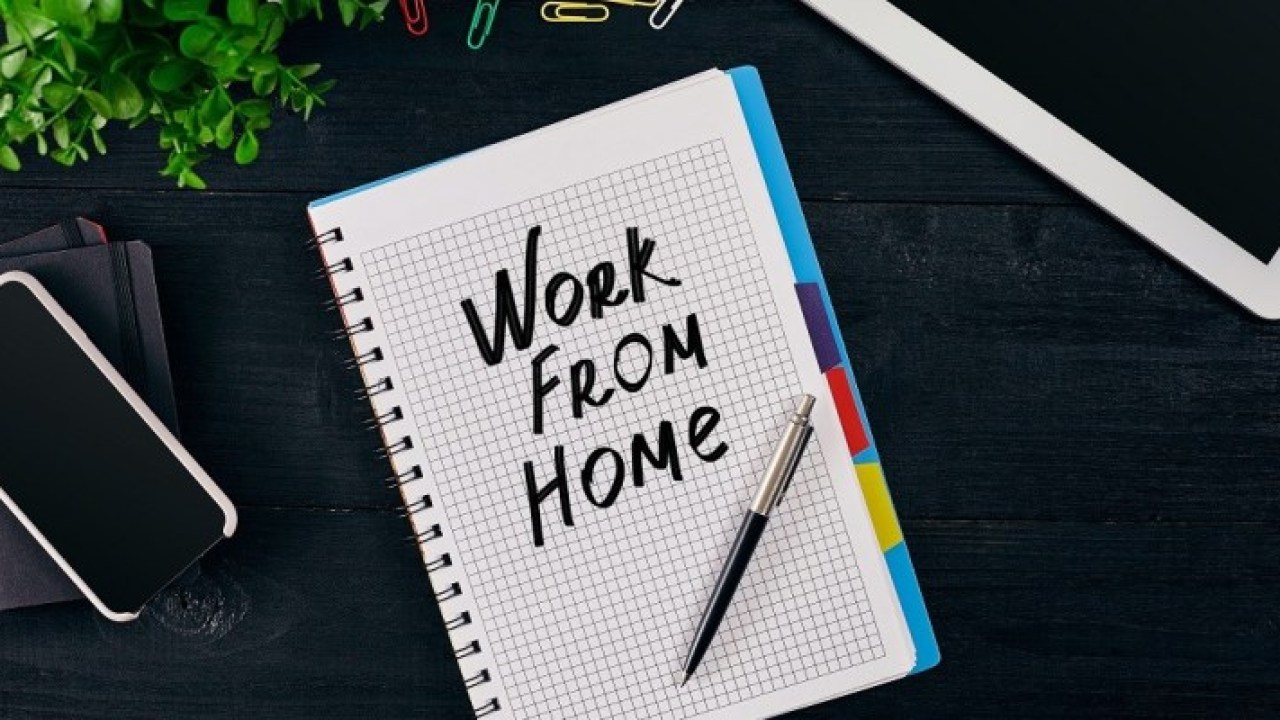 Work
From
Home